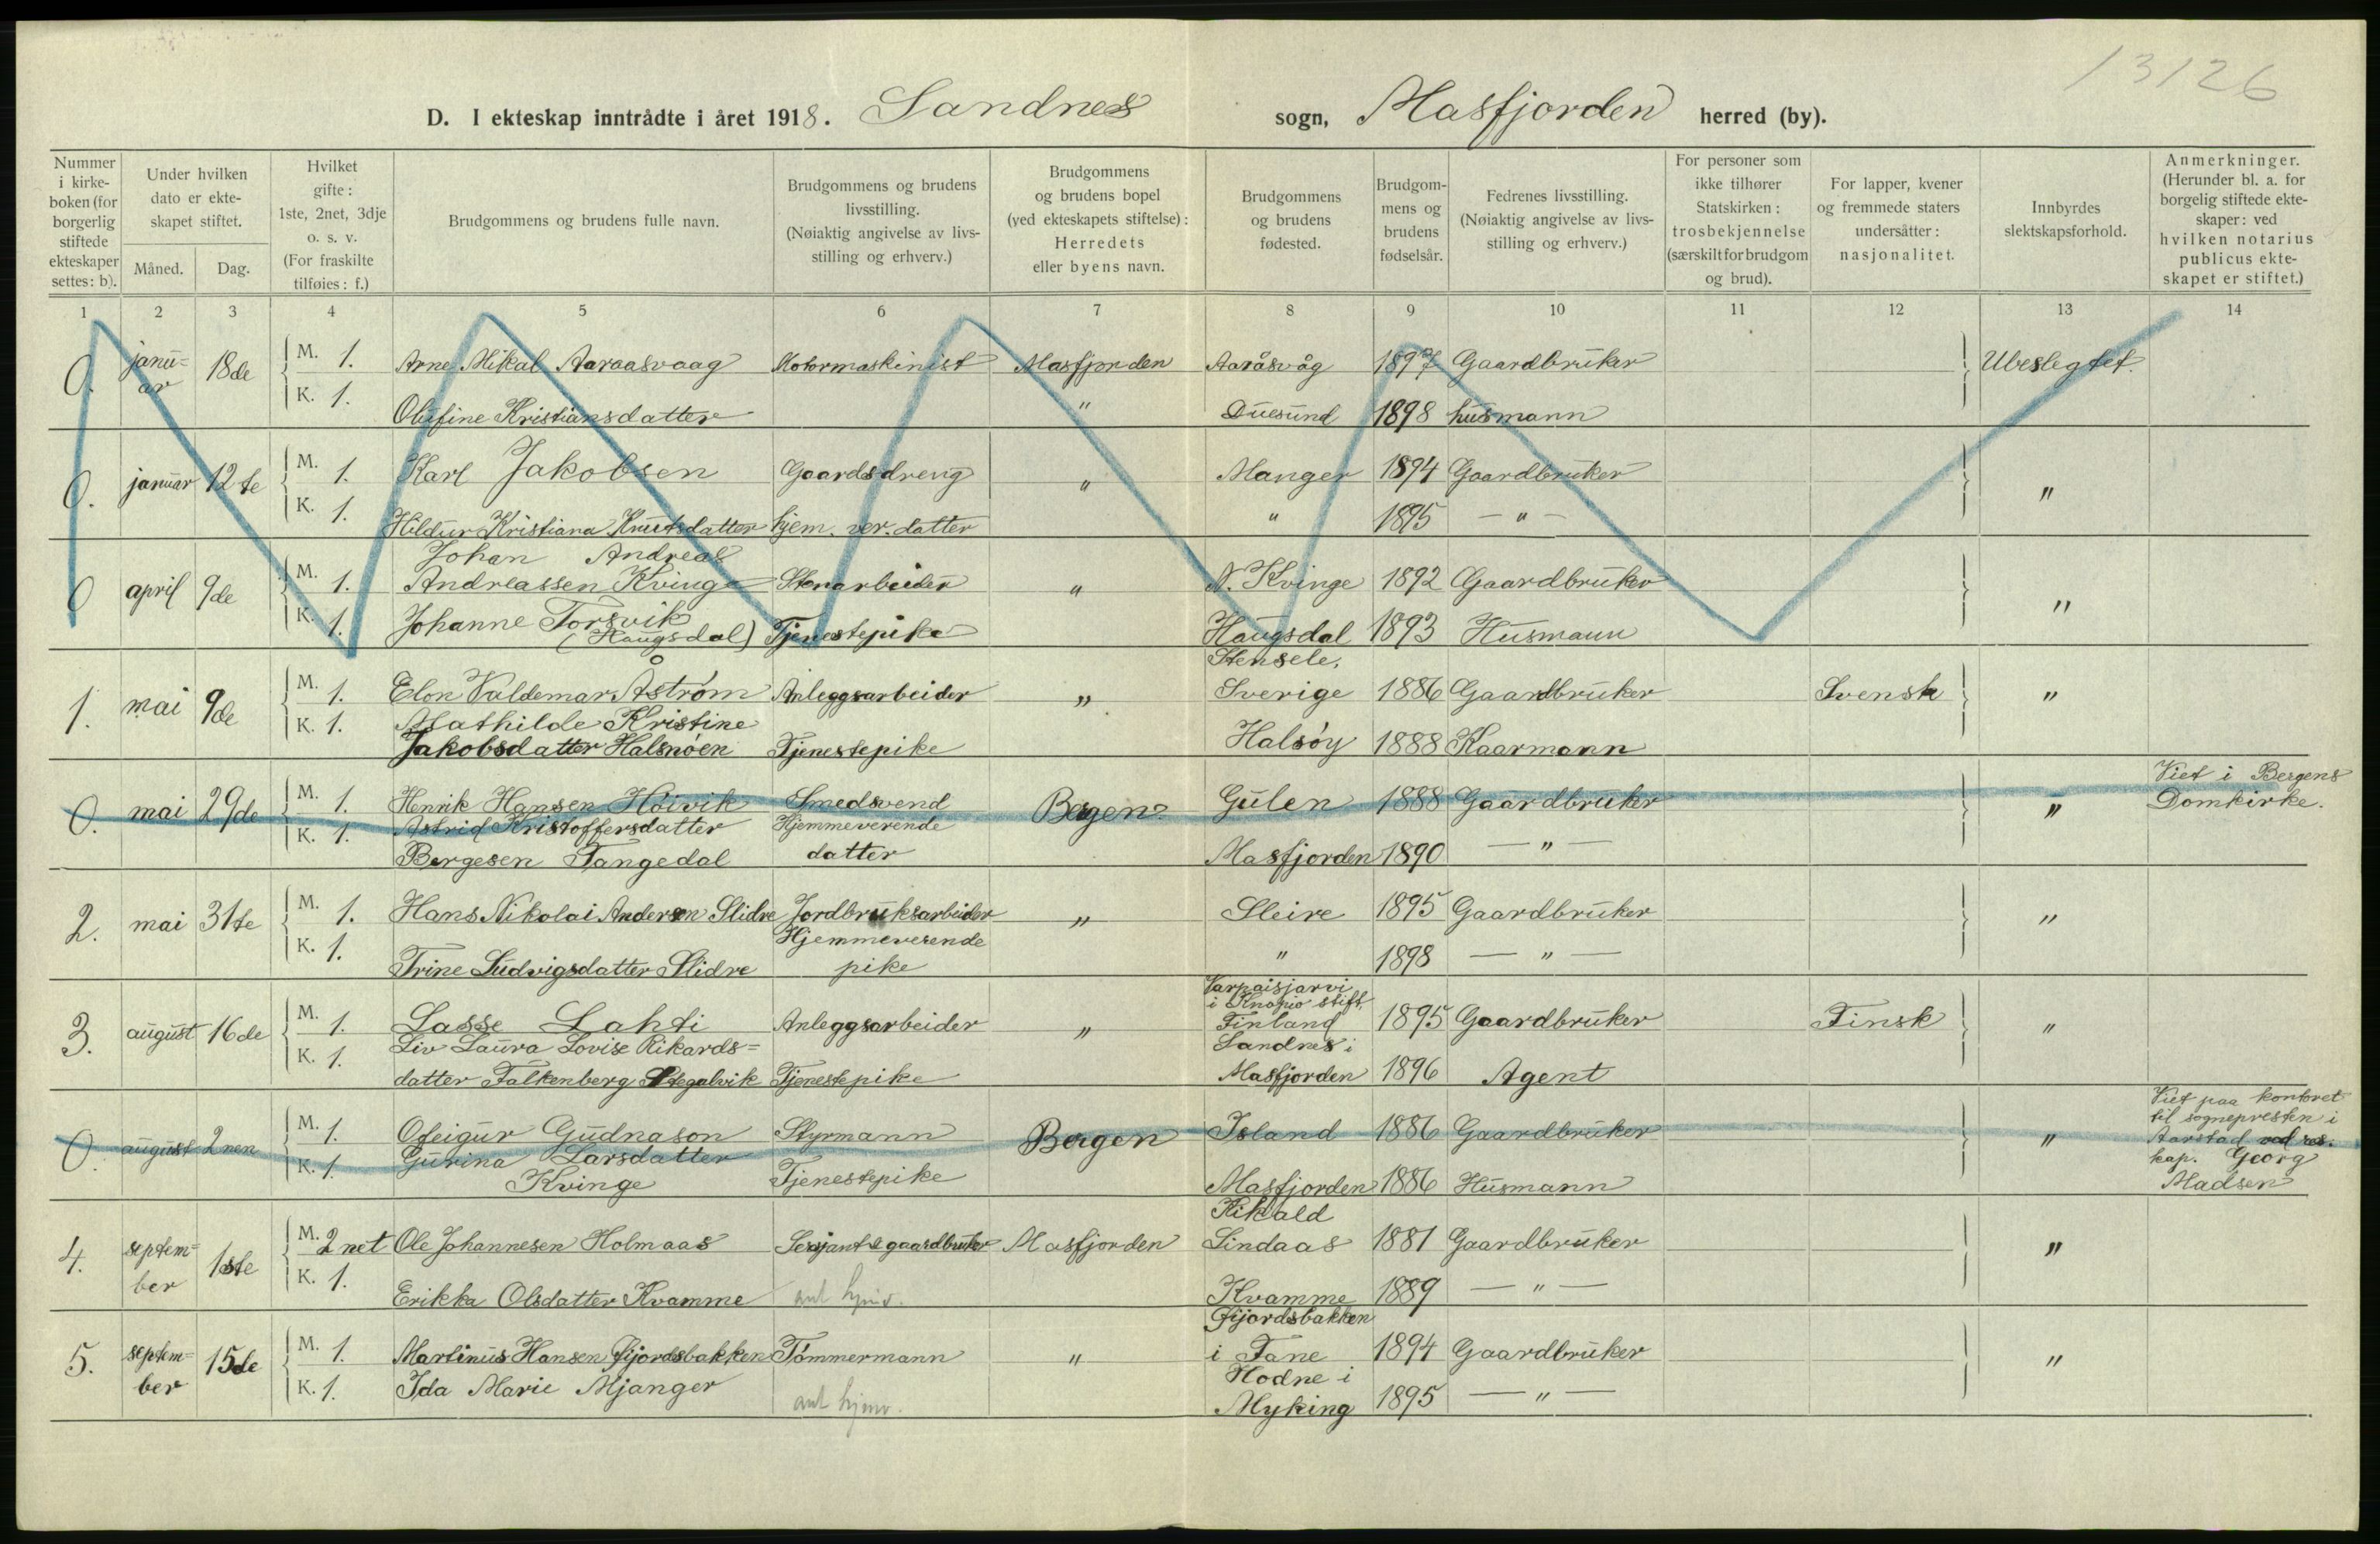 13126
D. I ekteskap inntrådte i året 1918. Sandnes sogn, Masfjorden herred (by).
Nummer i kirkeboken (for borgerlig stiftede ekteskaper settes: b).
Under hvilken dato er ekteskapet stiftet.
Måned. Dag.
Hvilket gifte: 1ste, 2net, 3dje o. s. v. (For fraskilte tilføies: f.)
Brudgommens og brudens fulle navn.
Brudgommens og brudens livsstilling. (Nøiaktig angivelse av livsstilling og erhverv.)
Brudgommens og brudens bopel (ved ekteskapets stiftelse): Herredets eller byens navn.
Brudgommens og brudens fødested.
Brudgommens og brudens fødselsår.
Fedrenes livsstilling. (Nøiaktig angivelse av livsstilling og erhverv.)
For personer som ikke tilhører Statskirken: trosbekjennelse (særskilt for brudgom og brud).
For lapper, kvener og fremmede staters undersåtter: nasjonalitet.
Innbyrdes slektskapsforhold.
Anmerkninger. (Herunder bl. a. for borgelig stiftede ekteskaper: ved hvilken notarius publicus ekteskapet er stiftet.)
1 2 3 4 5 6 7 8 9 10 11 12 13 14
0. januar 18de M. 1. Arne Mikal Aaraasvaag Motormaskinist Masfjorden Aaråsvåg 1897 Gaardbruker Ubeslegtet.
K. 1. Olufine Kristiansdatter " Duesund 1898 husmann
0. januar 12te M. 1. Karl Jakobsen Gaardsdreng " Manger 1894 Gaardbruker "
K. 1. Hildur Kristiana Knutsdatter hjem. ver. datter " 1895 — " —
0 april 9de M. 1. Johan Andreas Andreassen Kvinge Stenarbeider " N. Kvinge 1892 Gaardbruker "
K. 1. Johanne Torsvik (Haugsdal) Tjenestepike Haugsdal 1893 Husmann
1. mai 9de M. 1. Elon Valdemar Åström Anleggsarbeider " Stensele, Sverige 1886 Gaardbruker Svensk "
K. 1. Mathilde Kristine Jakobsdatter Halsnöen Tjenestepike Halsöy 1888 Kaarmann
0. mai 29de M. 1. Henrik Hansen Höivik Smedsvend Bergen Gulen 1888 Gaardbruker " Viet i Bergens Domkirke.
K. 1. Astrid Kristoffersdatter Bergesen Tangedal Hjemmeverende datter Masfjorden 1890 — " —
2. mai 31te M. 1. Hans Nikolai Andersen Slidre Jordbruksarbeider " Sleire 1895 Gaardbruker "
K. 1. Trine Ludvigsdatter Slidre Hjemmeverende pike " 1898 — " —
3. august 16de M. 1. Lasse Lahti Anleggsarbeider " Varpaisjarvi i Knopio stift, Finland 1895 Gaardbruker Finsk "
K. 1. Liv Laura Lovise Rikardsdatter Falkenberg Stegalvik Tjenestepike Sandnes i Masfjorden 1896 Agent
0. august 2nen M. 1. Ofeigur Gudnason Styrmann Bergen Island 1886 Gaardbruker " Viet paa kontoret til sognepresten i Aarstad ved res. kap. Georg Madsen
K. 1. Gurina Larsdatter Kvinge Tjenestepike Masfjorden 1886 Husmann
4. september 1ste M. 2net Ole Johannesen Holmaas Sersjant & gaardbruker Masfjorden Kikald Lindaas 1881 Gaardbruker "
K. 1. Erikka Olsdatter Kvamme ant hjmv. Kvamme 1889 — " —
5. september 15de M. 1. Martinus Hansen Fijordsbakken Tömmermann " Fijordsbakken i Fane 1894 Gaardbruker "
K. 1. Ida Marie Mjanger ant hjmv. Hodne i Myking 1895 — " —